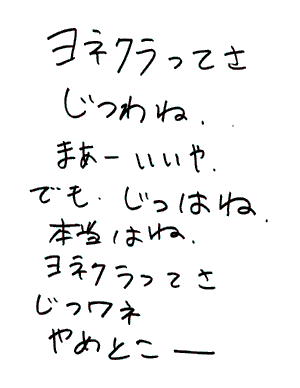 ヨネクラってさ
じつわね.
まぁーいいや.
でも.じつはね.
本当はね.
ヨネクラってさ
じつワネ
やめとこー